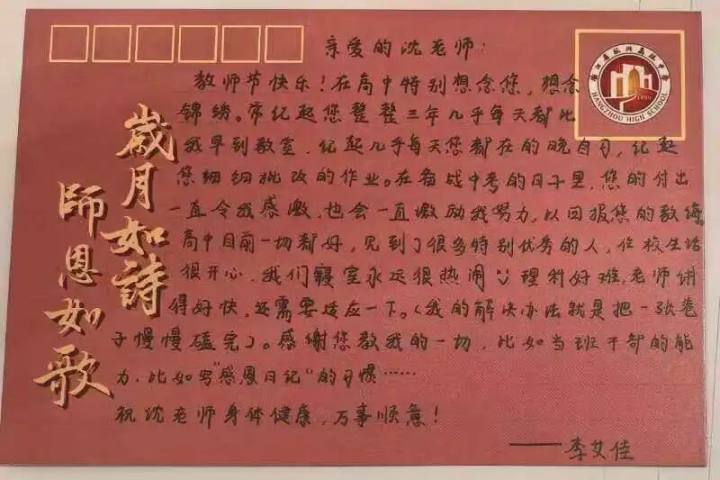 亲爱的沈老师:
教师节快乐!在高中特别想念您,想念
锦绣。常忆起您整整三年几乎每天都比
我早到教室,忆起几乎每天您都在的晚自习,忆起
您细细批改的作业。在备战中考的日子里,您的付出
一直令我感激,也会一直激励我努力,以回报您的教诲。
高中目前一切都好,见到了很多特别优秀的人,住校生活
很开心,我们寝室永远很热闹 理科好难,老师讲
得好快,还需要适应一下。(我的解决办法就是把一张卷
子慢慢磕完)。感谢您教我的一切,比如当班干部的能
力,比如写“感恩日记”的习惯……
祝沈老师身体健康,万事顺意!
——李艾佳
歲月如詩
師恩如歌
浙江省杭州高级中学
HANGZHOU HIGH SCHOOL
1899